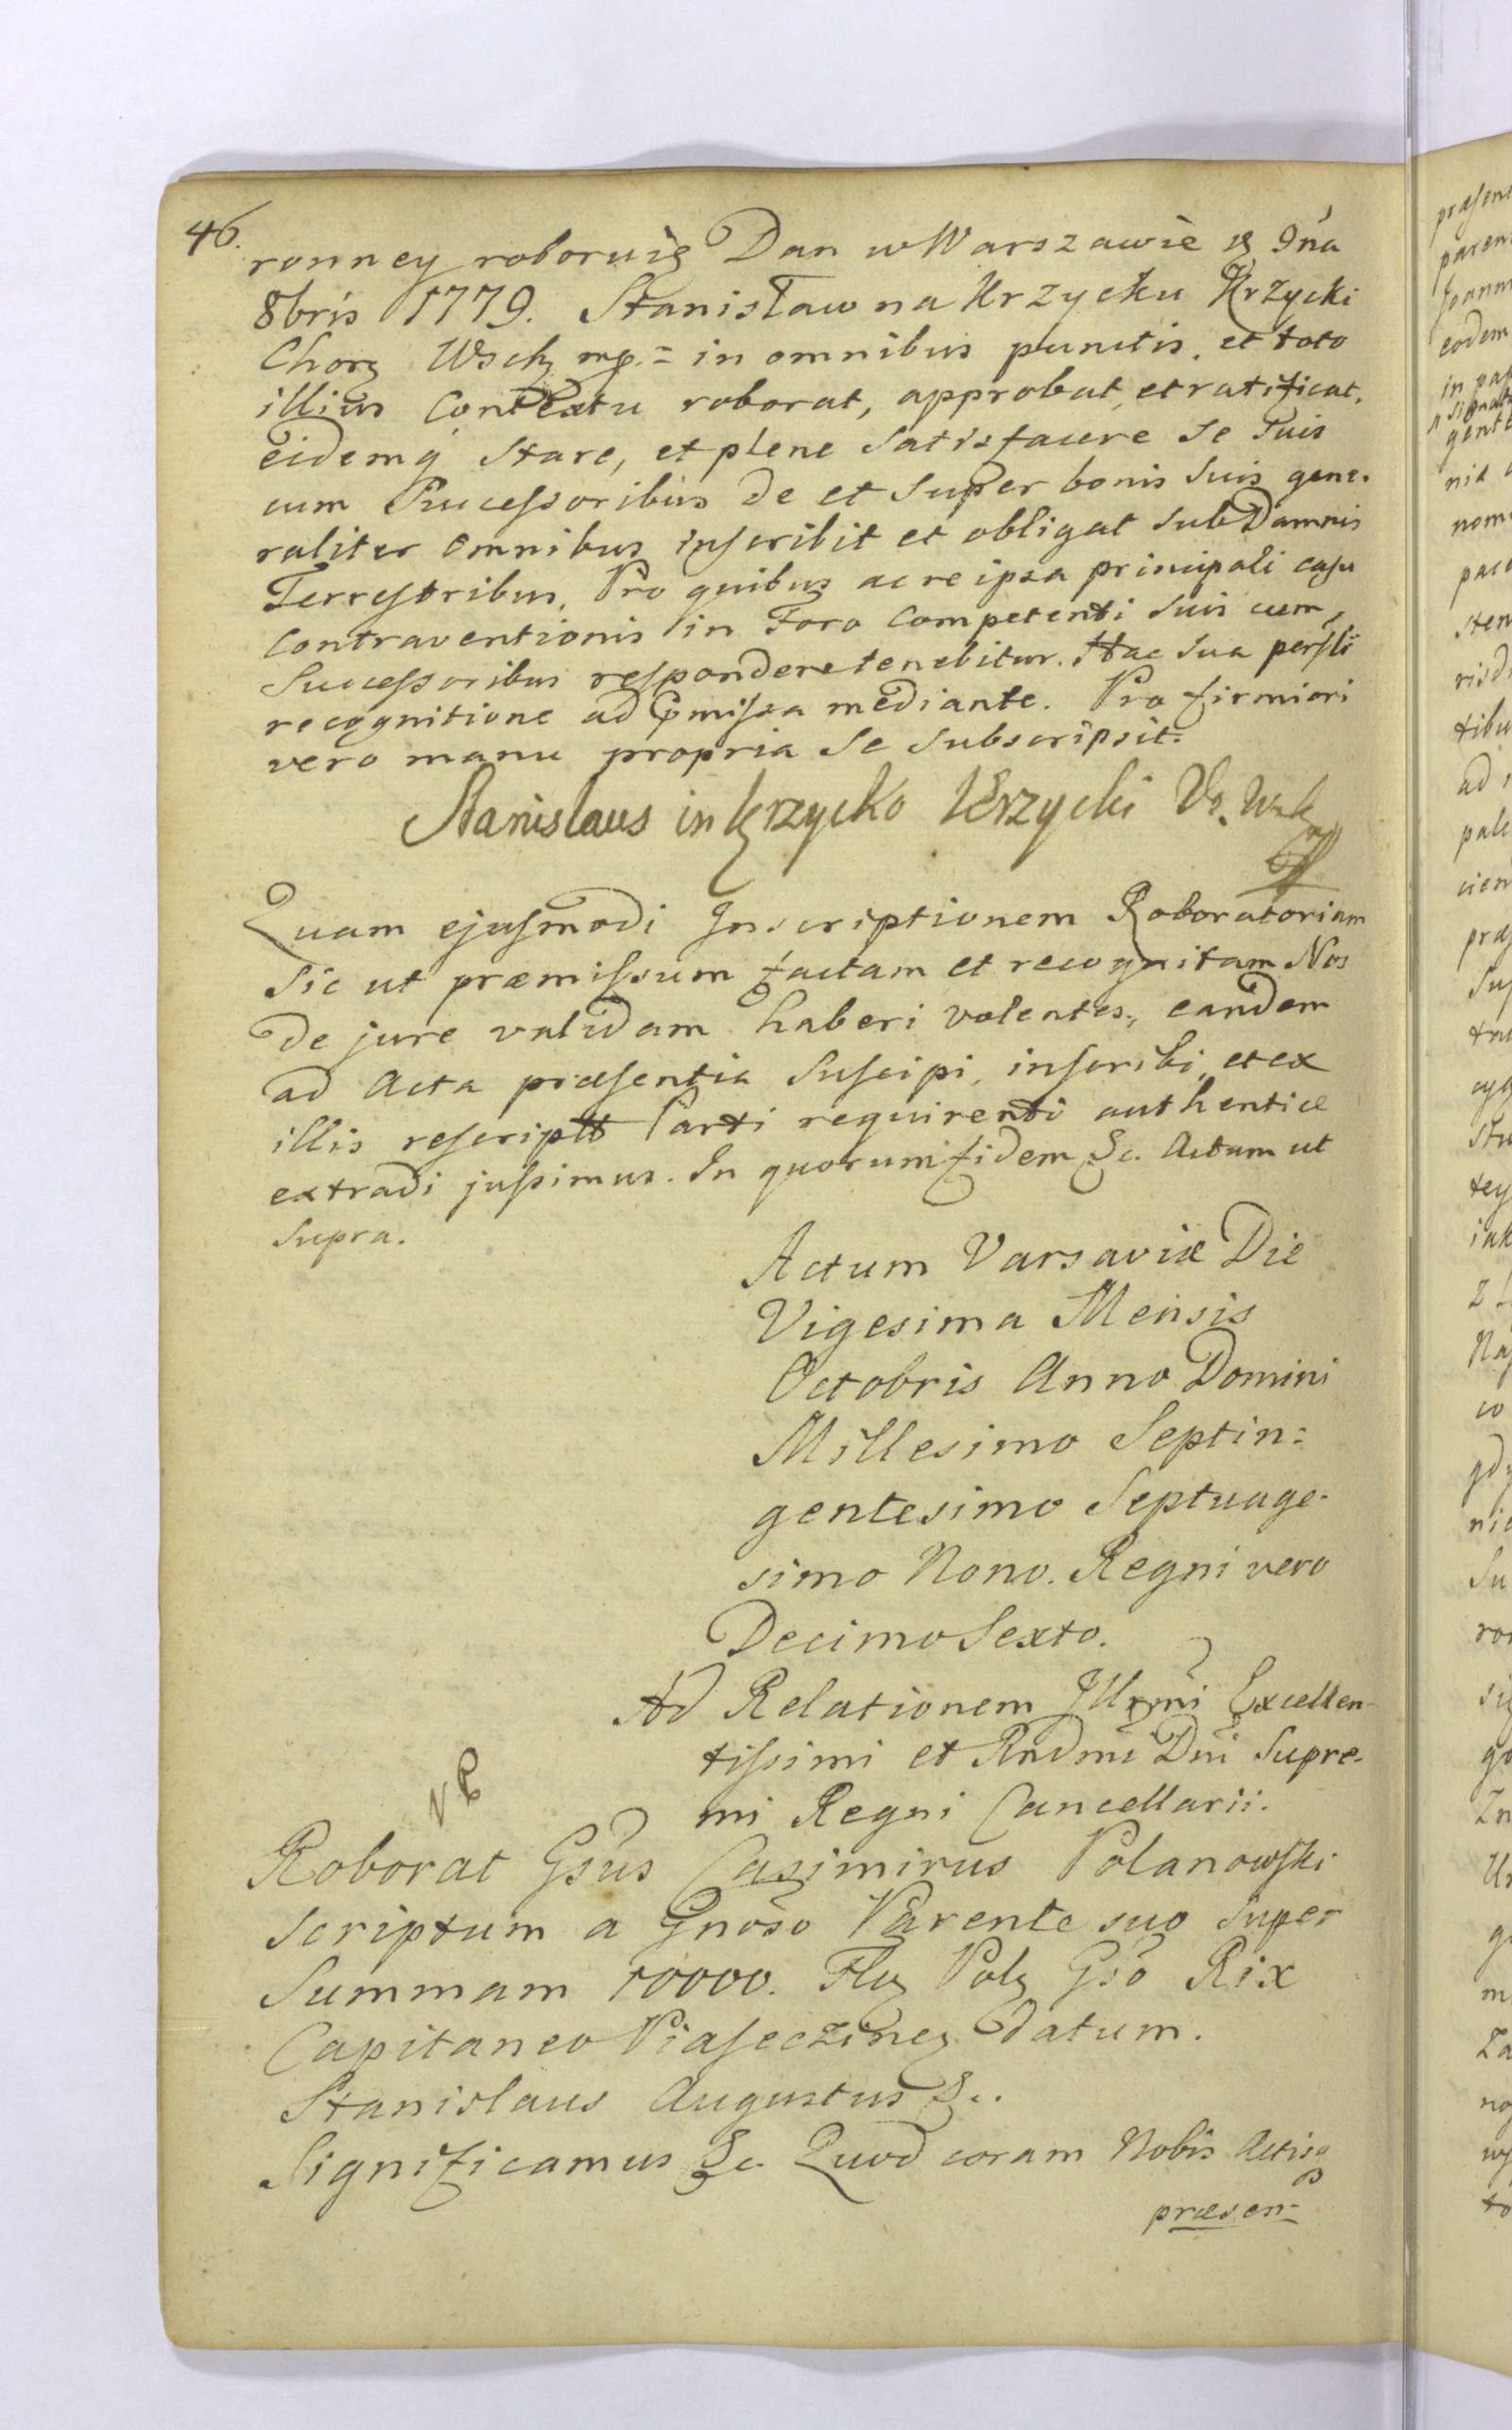 46.
ronney roboruię Dan w Warszawie
8bris 1779. Stanisław na Krzycku Krzycki
Chorą Wsch mp = in omnibus punctis, et toto
illius Contextu roborat, approbat, et ratificat,
eidemq̃ stare, et plene satisfacere se suis
cum Successoribus de et super bonis suis gene-
raliter omnibus inscribit et obligat sub Damnis
Terrestribus, Pro quibus ac re ipsa principali casu
contraventionis in Foro Competenti suis cum
Successoribus respondere tenebitur. Hac sua persli
recognitione ad p̃missa mediante. Pro firmiori
vero manu propria se subscripsit.
Stanislaus in Krzycko Krzycki Vx. Wsch
Quam ejusmodi Inscriptionem Roboratoriam
sic ut præmissum factam et recognitam Nos
de jure validam haberi volentes, eandem
ad Acta præsentia suscipi, inscribi, et ex
illis rescriptt Parti requirenti authentice
extradi jussimus. In quorum fidem &c. Actum ut
supra.
Actum Varsaviæ Die
Vigesima Mensis
Octobris Anno Domini
Millesimo Septin=
gentesimo Septuage-
simo Nono. Regni vero
Decimo Sexto.
Ad Relationem Illrmi Excellen-
tissimi et Rndmi Dni Supre-
mi Regni Cancellarii.
Roborat Gsus Casimirus Polanowski
scriptum a Gnoso Parente suo super
Summam 10000. Flų Polų Gso Rix
Capitaneo Piaseczineų datum.
Stanislaus Augustus &c.
Significamus &c. Quod coram Nobis Actisq
præsen=